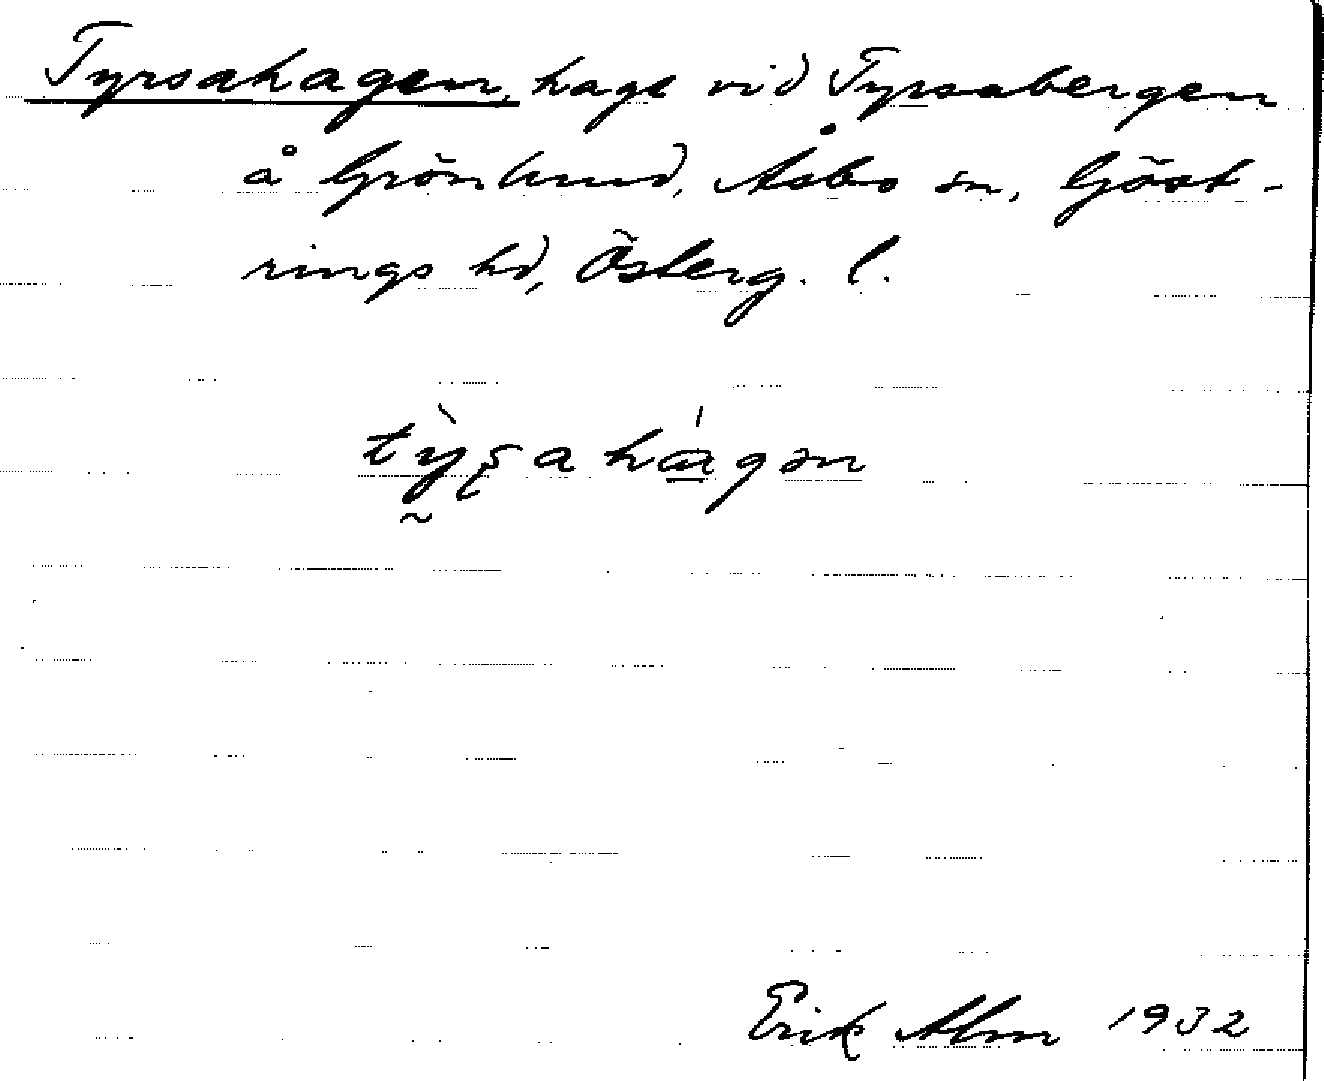 Tyrsahagen, hage vid Tyrsabergen
å Grönlund, Åsbo sn, Göst-
rings hd, Österg. l.
tỳ̰ʂahá̱gən
Erik Alm 1932